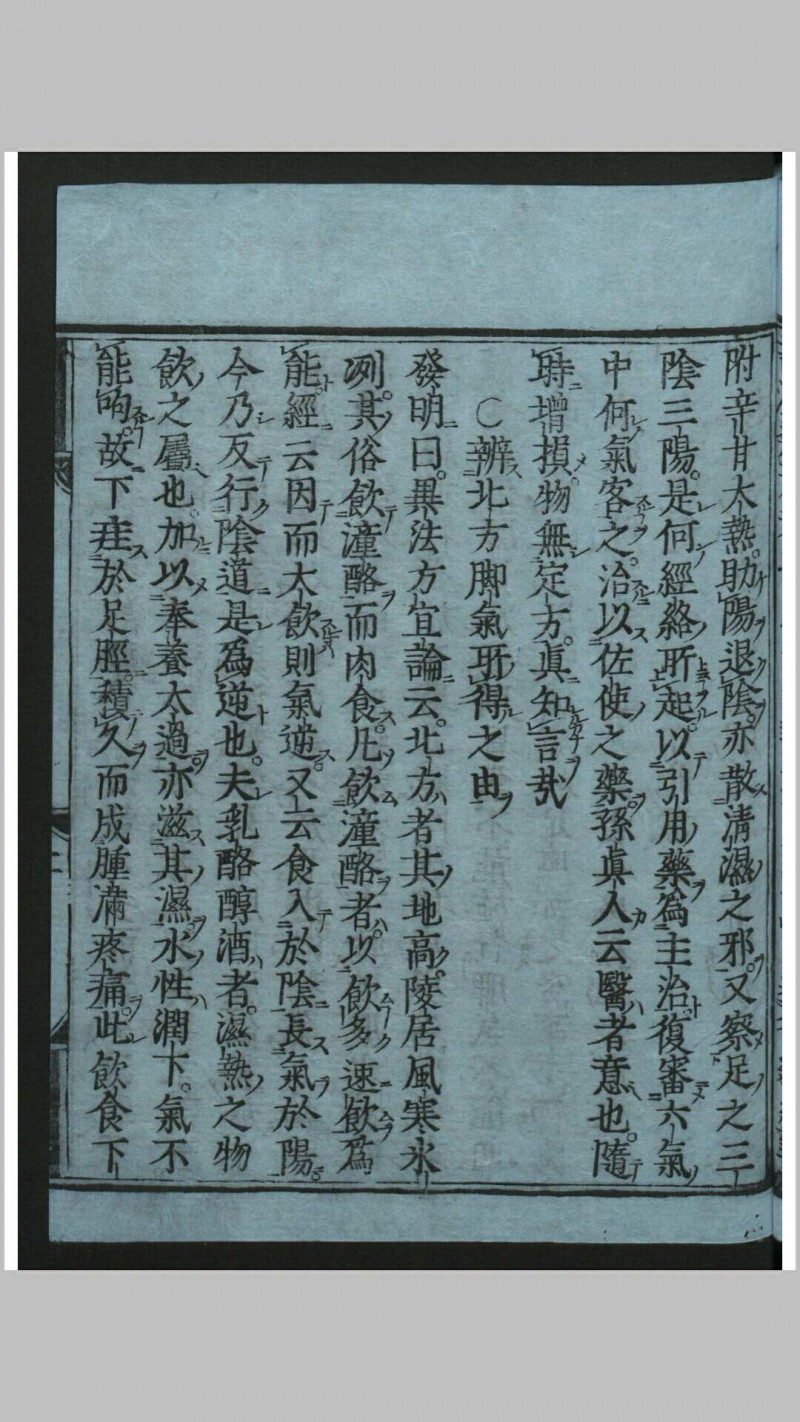 附辛甘大熱助陽退陰亦散清濕之邪又察足之三
陰三陽是何經絡所起以引用藥爲主治復審六氣
中何氣客之治以佐使之藥孫眞人云醫者意也隨
時增損物無定方眞知言哉
○辨北方脚氣所得之由
發明曰異法方宜論云北方者其地高陵居風寒氷
冽其俗飮潼酪而肉食凡飮潼酪者以飮多速飮爲
能經云因而大飮則氣逆又云食入於陰長氣於陽
今乃反行陰道是爲逆也夫乳酪醇酒者濕熱之物
飮之屬也加以奉養太過亦滋其濕水性潤下氣不
能呴故下疰於足脛積久而成腫滿疼痛此飮食下